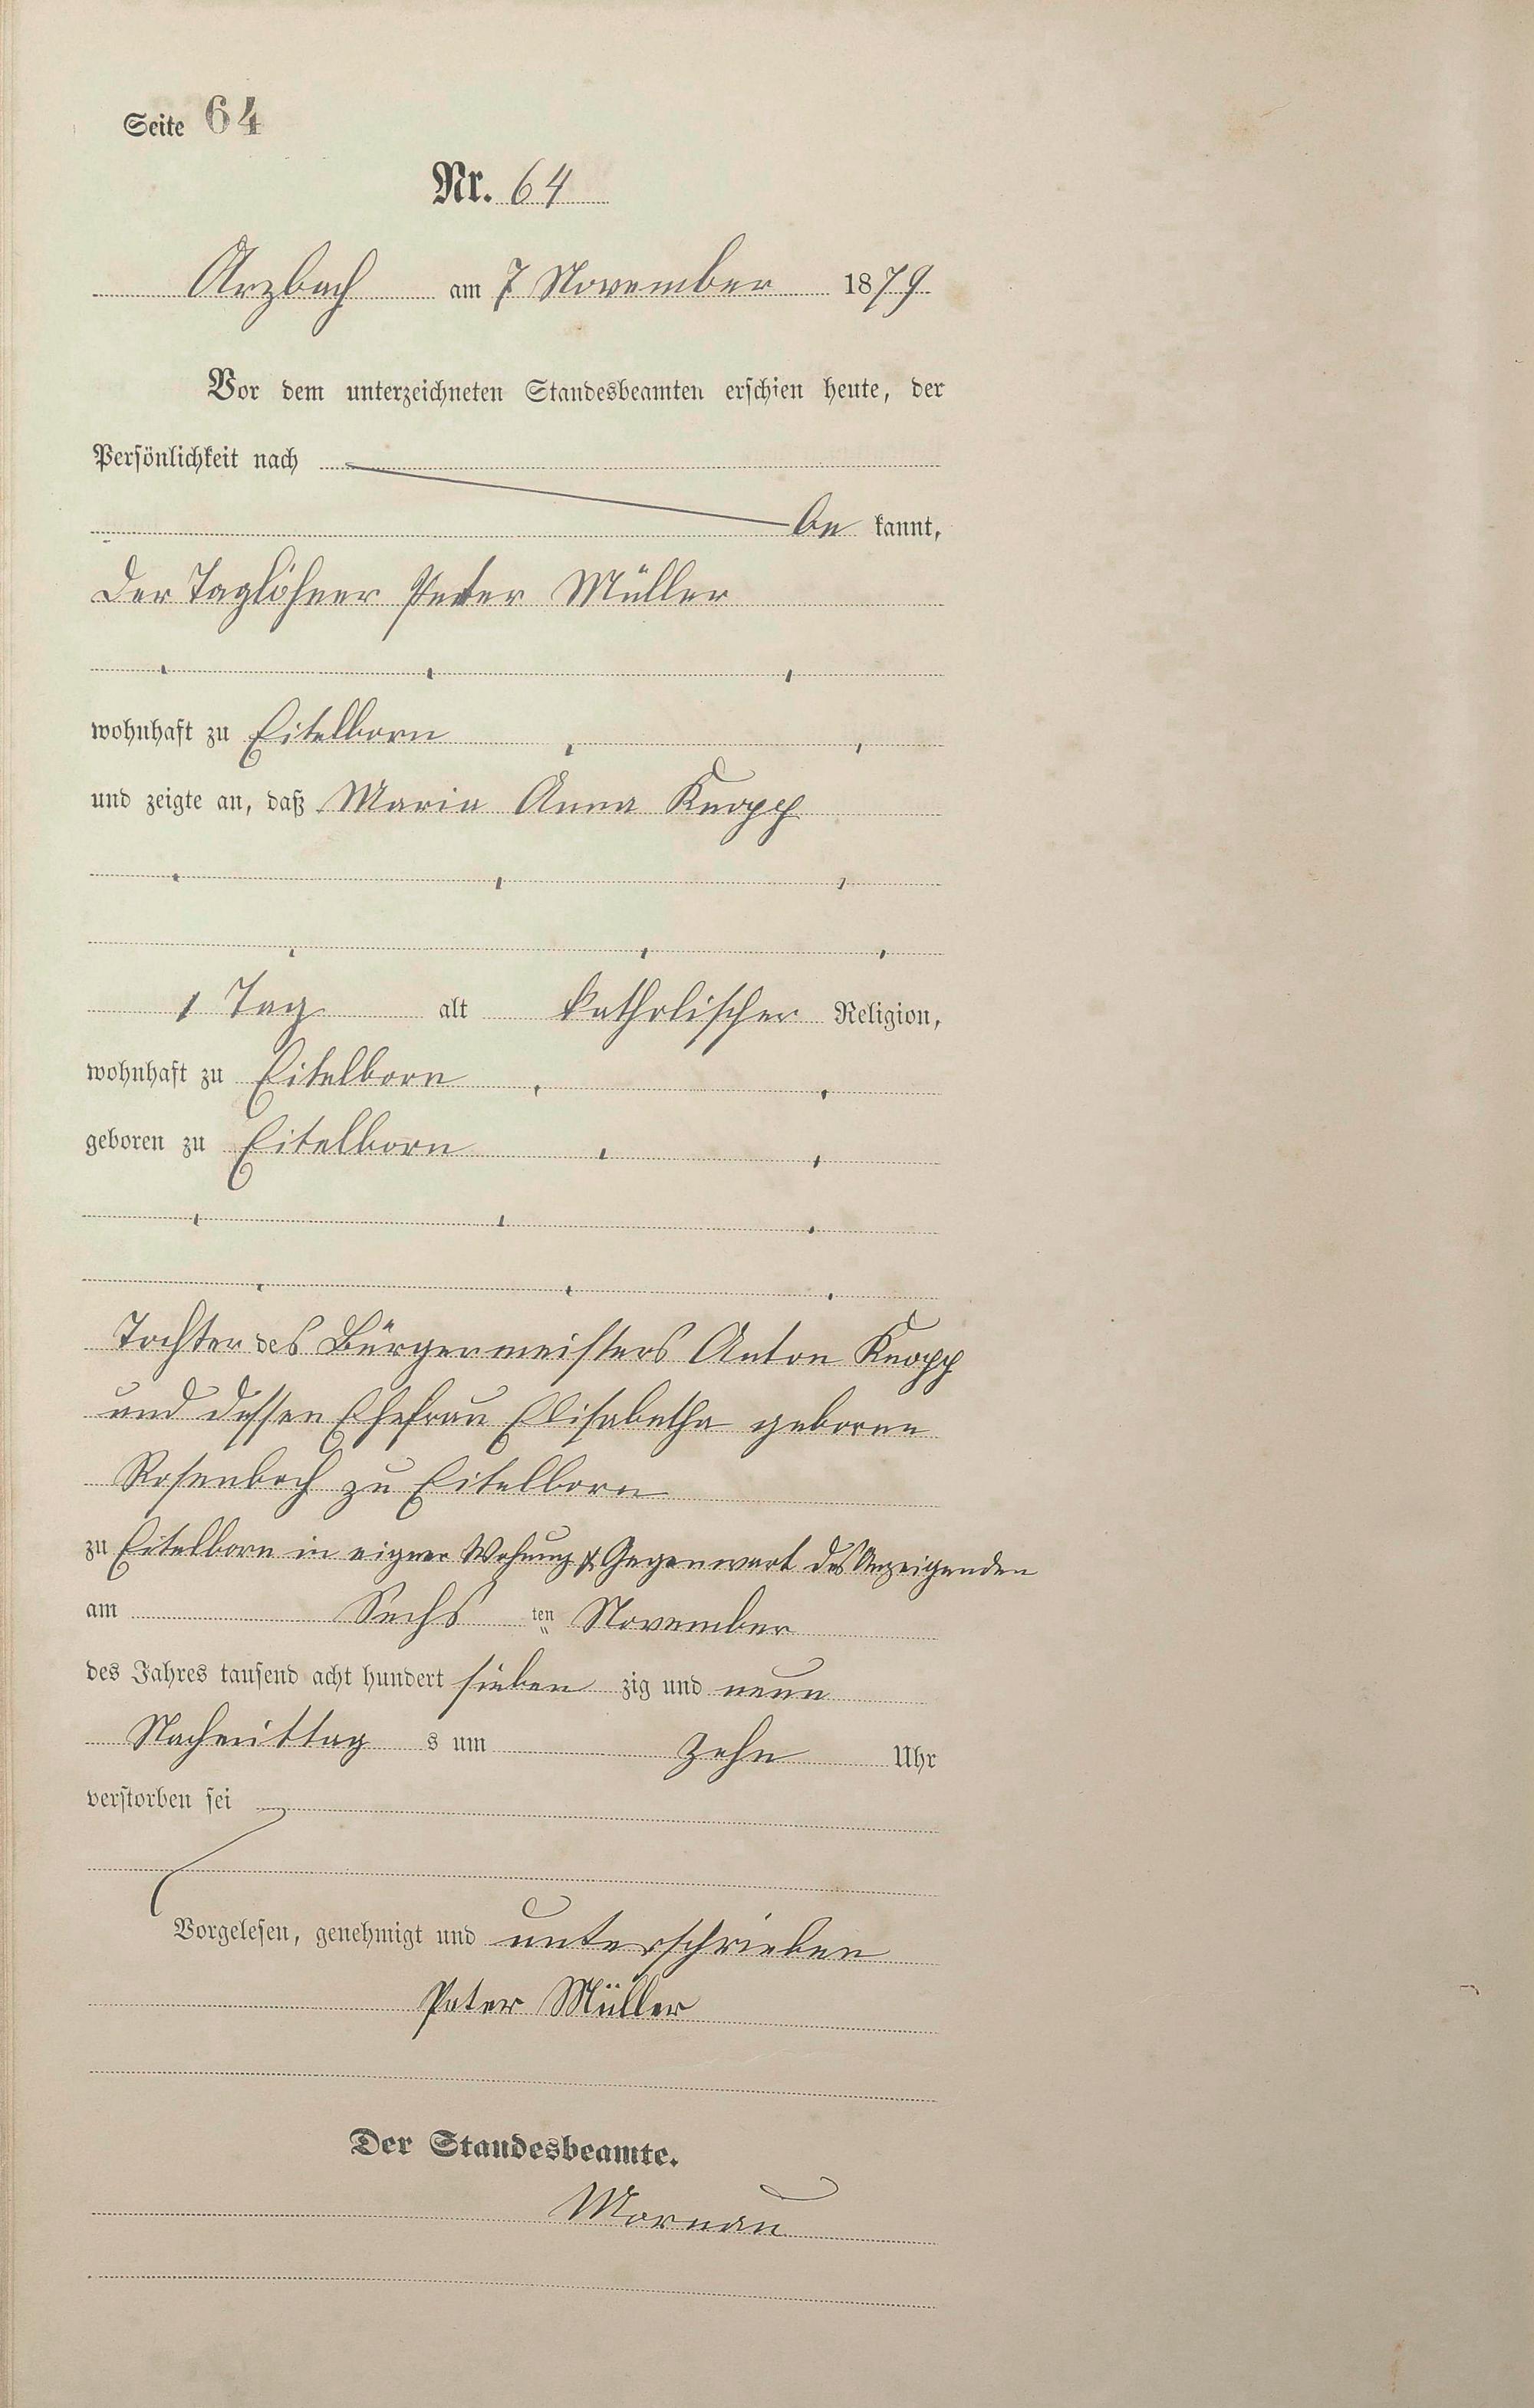 Seite 64
Nr. 64
Arzbach am 7 November 1879
Vor dem unterzeichneten Standesbeamten erschien heute, der
Persönlichkeit nach
be kannt,
der Taglöhner Peter Müller
wohnhaft zu Eitelborn
und zeigte an, daß Maria Anna Knopp
1 Tag alt katholischer Religion,
wohnhaft zu Eitelborn
geboren zu Eitelborn
Tochter des Bürgermeisters Anton Knopp
und dessen Ehefrau Elisabetha geborne
Rosenbach zu Eitelborn
zu Eitelborn in eigner Wohnung & Gegenwart des Anzeigenden
am Sechs ten November
des Jahres tausend acht hundert sieben zig und neun
Nachmittag s um zehn Uhr
verstorben sei
Vorgelesen, genehmigt und unterschrieben
Peter Müller
Der Standesbeamte.
Mornau